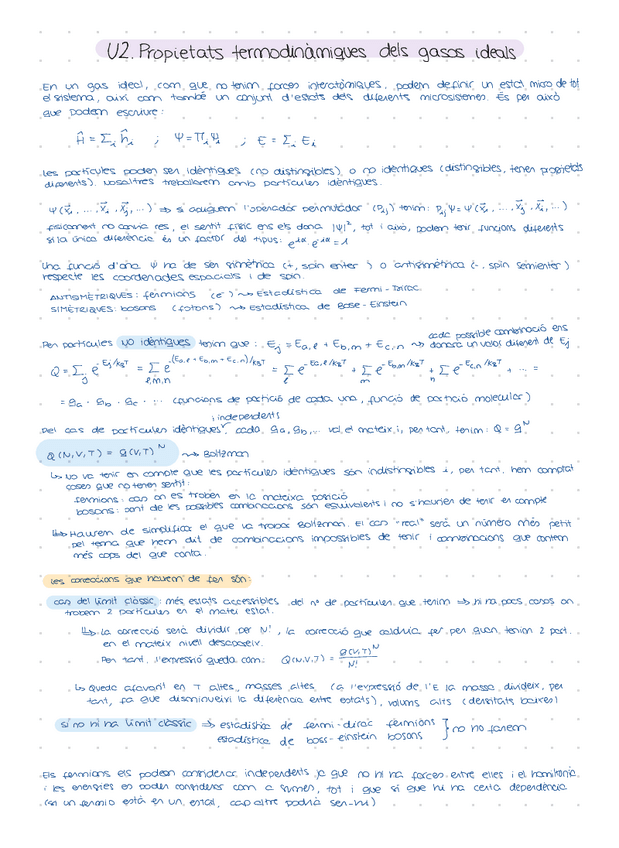 U2. Propietats termodinàmiques dels gasos ideals
En un gas ideal, com que no tenim forces interatòmiques, podem definir un estat micro de tot
el sistema, així com també un conjunt d'estats dels diferents microsistemes. És per això
que podem escriure:
Ĥ = Σᵢ ĥᵢ ; Ψ = Πᵢ Ψᵢ ; E = Σᵢ Eᵢ
Les partícules poden ser idèntiques (no distingibles) o no idèntiques (distingibles, tenen propietats
diferents). Nosaltres treballarem amb partícules idèntiques.
Ψ(x⃗₁, ..., x⃗ᵢ, x⃗ⱼ, ...) ⇒ si apliquem l'operador permutador (Pᵢⱼ) tenim: Pᵢⱼ Ψ = Ψ(x⃗₁, ..., x⃗ⱼ, x⃗ᵢ, ...)
físicament no canvia res, el sentit físic ens els dona |Ψ|², tot i això, podem tenir funcions diferents
si la única diferència és un factor del tipus: e^iα · e^-iα = 1
Una funció d'ona Ψ ha de ser simètrica (+, spin enter) o antisimètrica (-, spin semienter)
respecte les coordenades espacials i de spin.
ANTISIMÈTRIQUES: fermions (e⁻) ⇝ Estadística de Fermi-Dirac
SIMÈTRIQUES: bosons (fotons) ⇝ Estadística de Bose-Einstein
Per partícules no idèntiques tenim que: Eⱼ = Ea,ℓ + Eb,m + Ec,n ⇝ cada possible combinació ens
donarà un valor diferent de Eⱼ
Q = Σⱼ e^-Eⱼ/kBT = Σℓ,m,n e^-(Ea,ℓ + Eb,m + Ec,n)/kBT = Σℓ e^-Ea,ℓ/kBT + Σm e^-Eb,m/kBT + Σn e^-Ec,n/kBT + ... =
= qa · qb · qc · ... (funcions de partició de cada una, funció de partició molecular)
i independents
Pel cas de partícules idèntiques cada qa, qb, ... val el mateix i, per tant, tenim: Q = q^N
Q(N,V,T) = q(V,T)^N ⇝ Boltzman
↳ no va tenir en compte que les partícules idèntiques són indistingibles i, per tant, hem comptat
coses que no tenen sentit:
fermions: cas on es troben en la mateixa posició
bosons: part de les possibles combinacions són equivalents i no s'haurien de tenir en compte
↳ Haurem de simplificar el que va trobar Boltzman. El cas "real" serà un número més petit
pel tema que hem dit de combinacions impossibles de tenir i combinacions que contem
més cops del que conta.
Les correccions que haurem de fer són:
cas del límit clàssic: més estats accessibles del nº de partícules que tenim ⇒ hi ha pocs casos on
trobem 2 partícules en el mateix estat.
↳ La correcció serà dividir per N!, la correcció que caldria fer per quan tenim 2 part.
en el mateix nivell desapareix.
Per tant, l'expressió queda com: Q(N,V,T) = q(V,T)^N / N!
↳ Queda afavorit en T altes, masses altes, (a l'expressió de l'E la massa divideix, per
tant, fa que disminueixi la diferència entre estats), volums alts (densitats baixes)
si no hi ha límit clàssic ⇒ estadística de fermi-dirac fermions
estadística de boss-einstein bosons } no ho farem
Els fermions els podem considerar independents ja que no hi ha forces entre elles i el hamiltonià
i les energies es poden considerar com a sumes, tot i que sí que hi ha certa dependència
(si un fermió està en un estat, cap altre podrà ser-hi)